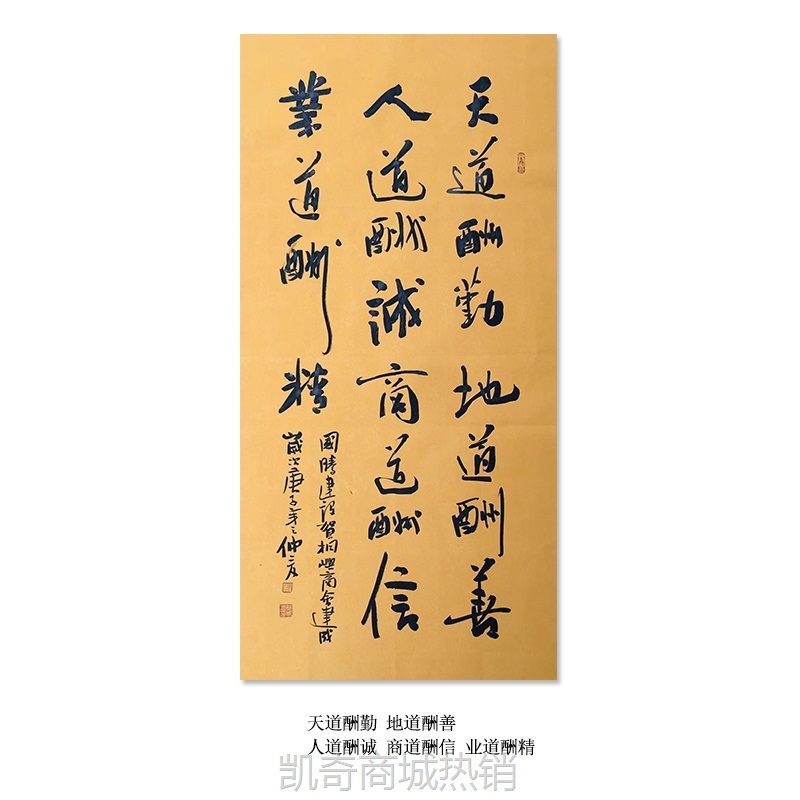 天道酬勤地道酬善
人道酬誠商道酬信
業道酬精
國騰建設賀桐興商會建成
歲次庚子年之仲夏
天道酬勤 地道酬善
人道酬诚 商道酬信 业道酬精
凯奇商城热销